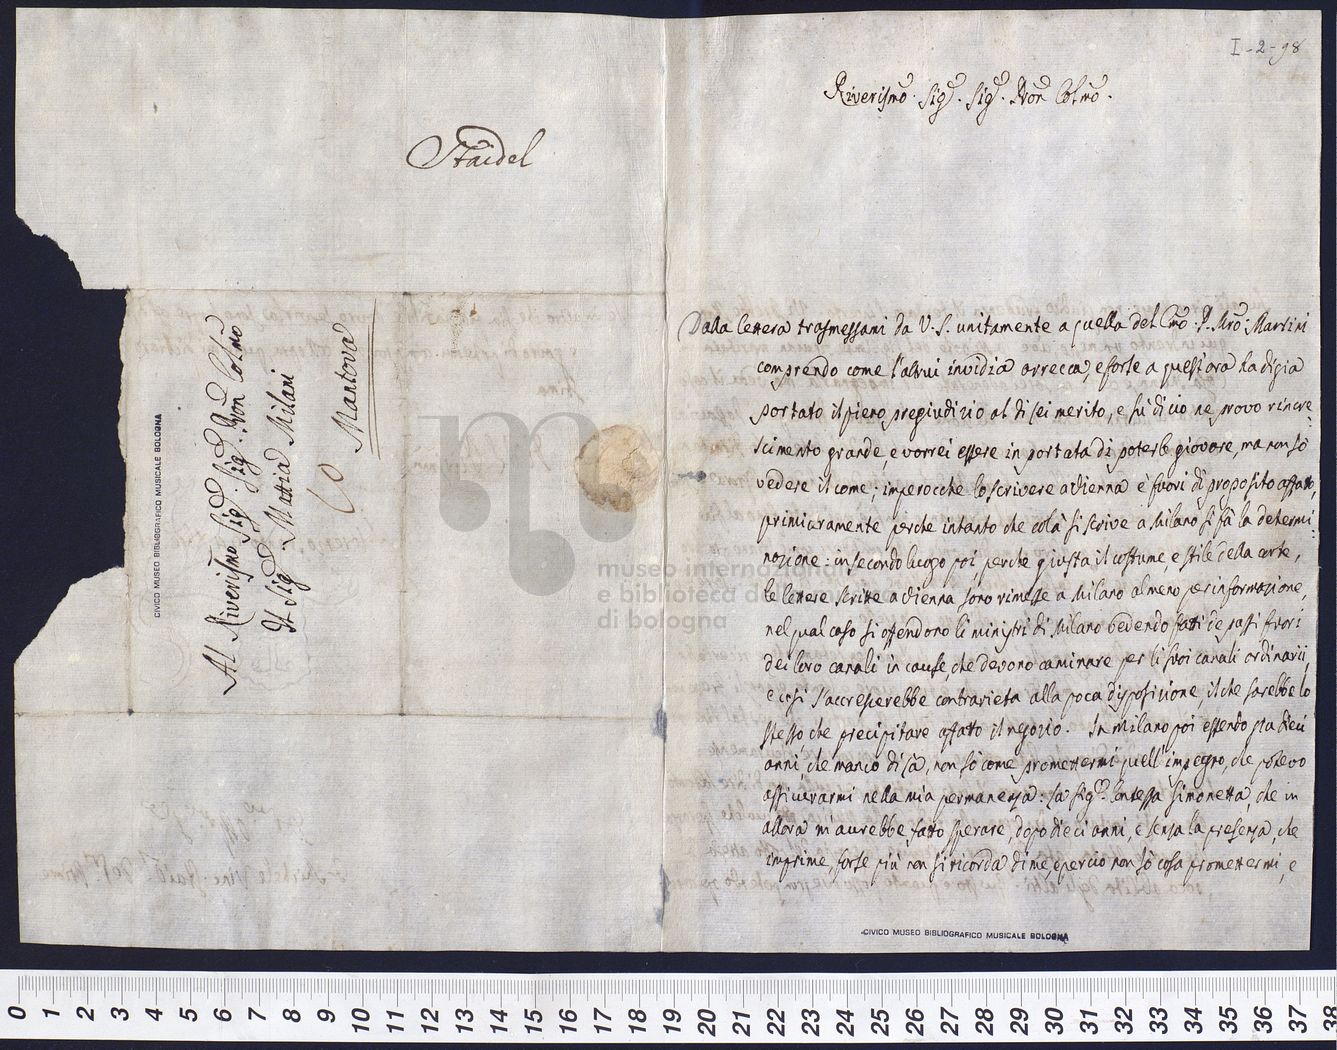 I-2-98
Riverismo. Sigr. Sigr. Pron Colmo.
Staidel
Al Riverismo Sigr. Sigr. Pron Colmo
Il Sigr. Mattia Milani
Mantova
CIVICO MUSEO BIBLIOGRAFICO MUSICALE BOLOGNA
Dalla lettera trasmessami da V.S. unitamente a quella del P. Mro: Martini
comprendo come l'altrui invidia arrecca, e forse a quest'ora ha digia
portato il piero pregiudizio al di lei merito, e su di cio ne provo rincre=
scimento grande, e vorrei essere in portata di poterle giovare, ma non sò
vedere il come; imperocche lo scrivere a Vienna è fuori di proposito affatto,
primieramente perche intanto che colà si scrive a Milano si fà la determi=
nazione: in secondo luogo poi, perche giusta il costume e stile della corte,
le lettere scritte a Vienna sono rimesse a Milano almeno per informazione,
nel qual caso si offendono li ministri di Milano vedendo fatti de passi fuori
dei loro canali in cause, che devono caminare per li suoi canali ordinarii,
e così s'accresperebbe contrarietà alla poca disposizione, il che sarebbe lo
stesso, che precipitare affatto il negozio. In Milano poi essendo gia dieci
anni, che manco di là, non sò come promettermi quell'impegno, che potevo
assicurarmi nella mia permanenza: la Sigra. Contessa Simonetta che in
allora m'aurebbe fatto sperare, dopo dieci anni, e senza la presenza, che
imprime, forse più non si ricorda di me, e percio non sò cosa promettermi, e
museo internazionale
e biblioteca della musica
di bologna
CIVICO MUSEO BIBLIOGRAFICO MUSICALE BOLOGNA
0 1 2 3 4 5 6 7 8 9 10 11 12 13 14 15 16 17 18 19 20 21 22 23 24 25 26 27 28 29 30 31 32 33 34 35 36 37 38